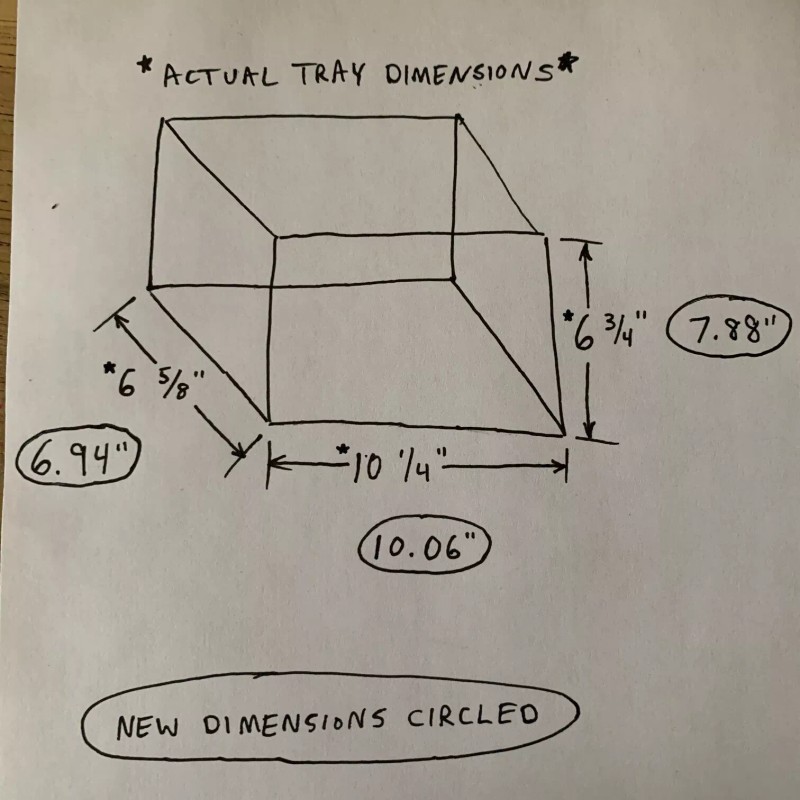 *ACTUAL TRAY DIMENSIONS*
*6 3/4"
7.88"
*6 5/8"
6.94"
*10 1/4"
10.06"
NEW DIMENSIONS CIRCLED